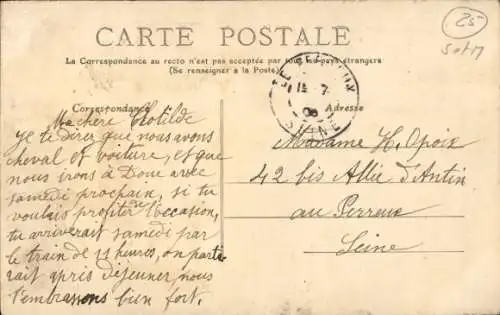 25
CARTE POSTALE
La Correspondance au recto n'est pas acceptée par tous les pays étrangers
(Se renseigner à la Poste)
Correspondance
Adresse
14 - 7
08
SEINE
Ma chère Clotilde
Je te dirai que nous avons
cheval et voiture, et que
nous irons à Doue avec
samedi prochain, si tu
voulais profiter de l'occasion,
tu arriverait samedi par
le train de 11 heures, on parti
rait après déjeuner, nous
t'embrassons bien fort.
Madame H. Opoix
42 bis Allée d'Antin
au Perreux
Seine